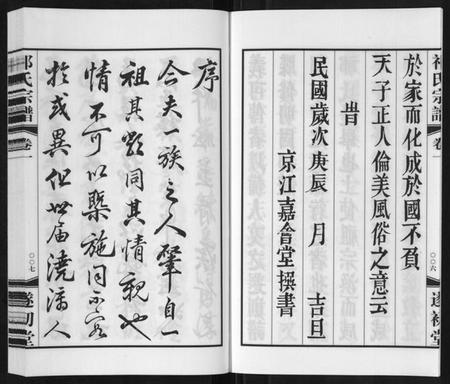 祁氏宗譜
卷一
〇〇六
遂初堂
於家而化成於國不負
天子正人倫美風俗之意云
旹
民國歲次庚辰 月 吉旦
京江嘉會堂撰書
序
今夫一族之人肇自一
祖其貌同其情親也
情不可以槩施同不容
或異但世届澆漓人
氏宗譜
卷一
〇〇七
遂初堂